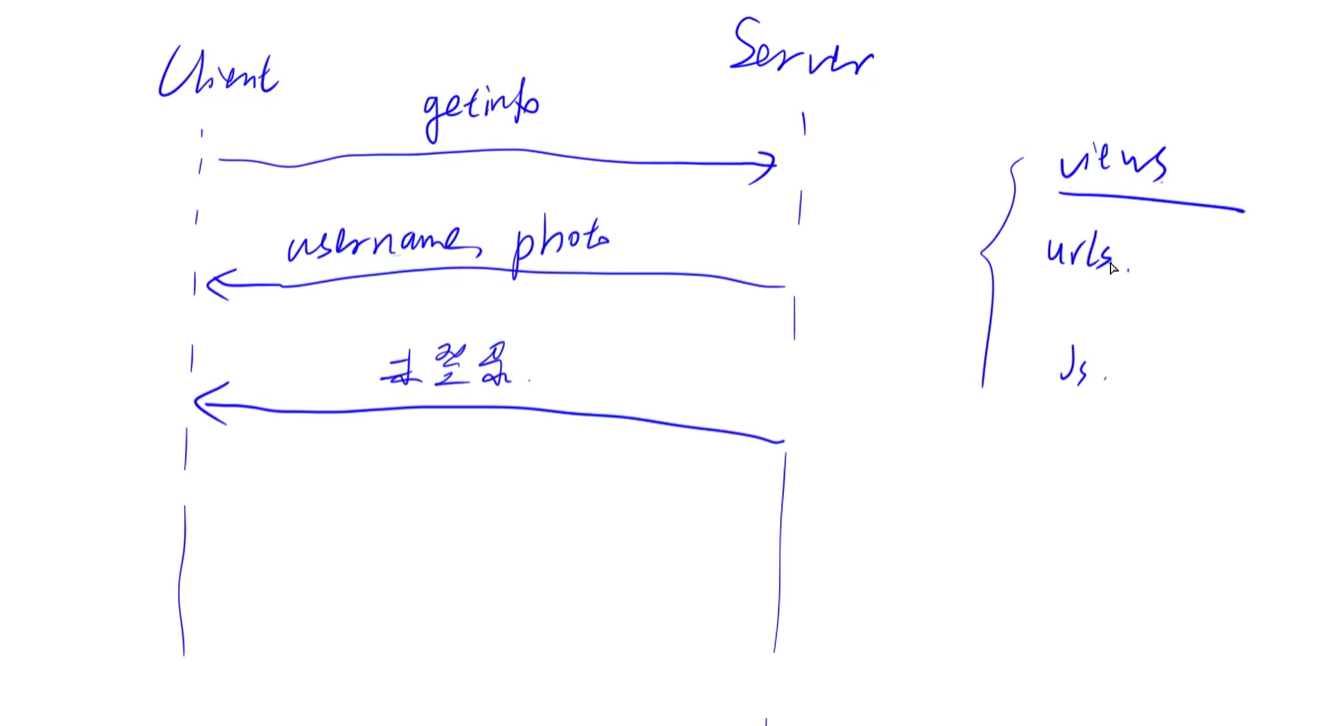 Client
Server
getinfo
username, photo
未登录.
views
urls.
Js.